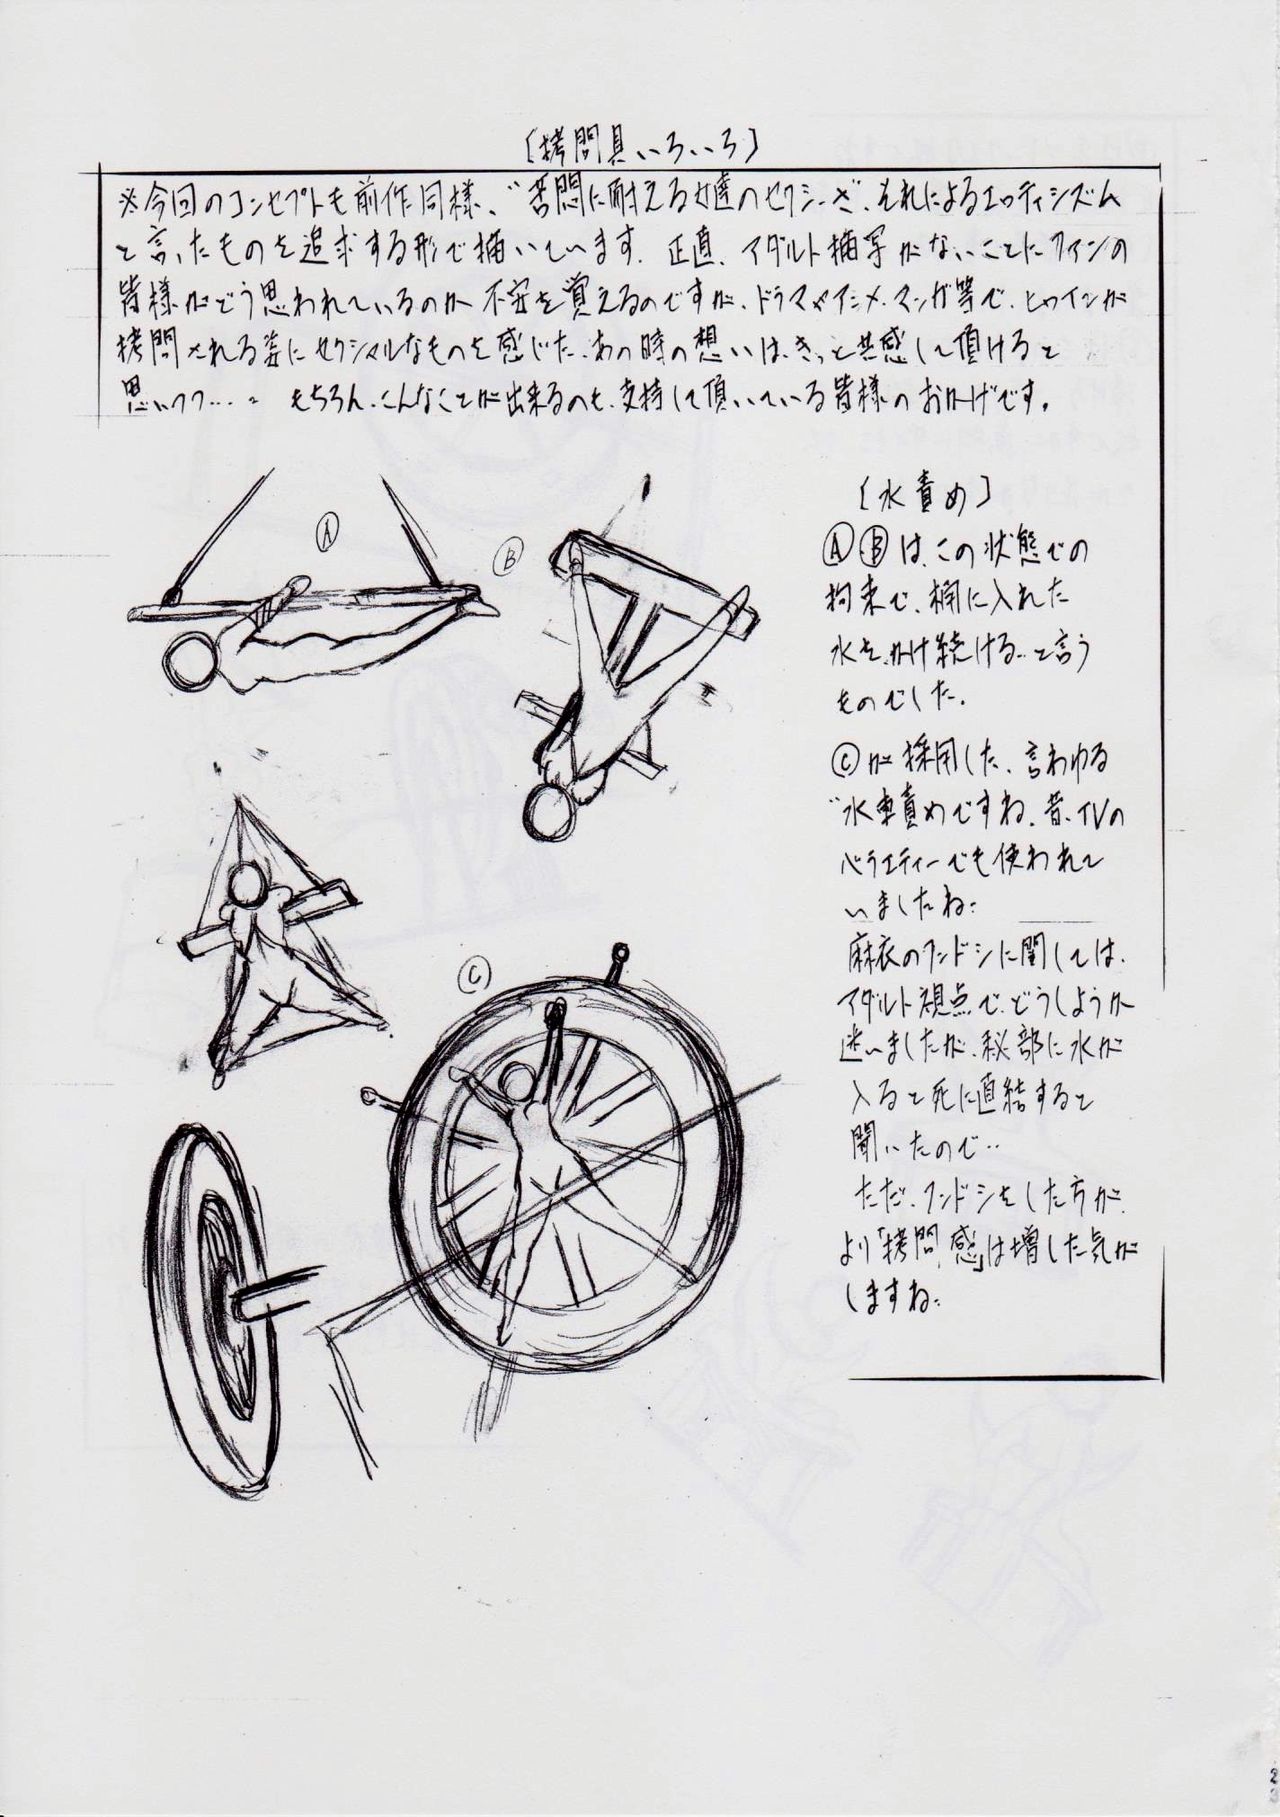 〔拷問具いろいろ〕
※今回のコンセプトも前作同様、“苦悶に耐える女達のセクシーさ、それによるエロティシズム
と言ったものを追求する形で描いています。正直、アダルト描写がないことにファンの
皆様がどう思われているのか不安を覚えるのですが、ドラマやアニメ、マンガ等で、ヒロインが
拷問される姿にセクシャルなものを感じた、あの時の想いは、きっと共感して頂けると
思いつつ…。もちろん、こんなことが出来るのも、支持して頂いている皆様のおかげです。
Ⓐ
Ⓑ
Ⓒ
〔水責め〕
ⒶⒷは、この状態での
拘束で、桶に入れた
水を、かけ続ける…と言う
ものでした。
Ⓒが採用した、言わゆる
“水車責めですね、昔、TVの
バラエティーでも使われて
いましたね…
麻衣のフンドシに関しては、
アダルト視点で、どうしようか
迷いましたが、秘部に水が
入ると死に直結すると
聞いたので…
ただ、フンドシをした方が、
より「拷問感」は増した気が
しますね…